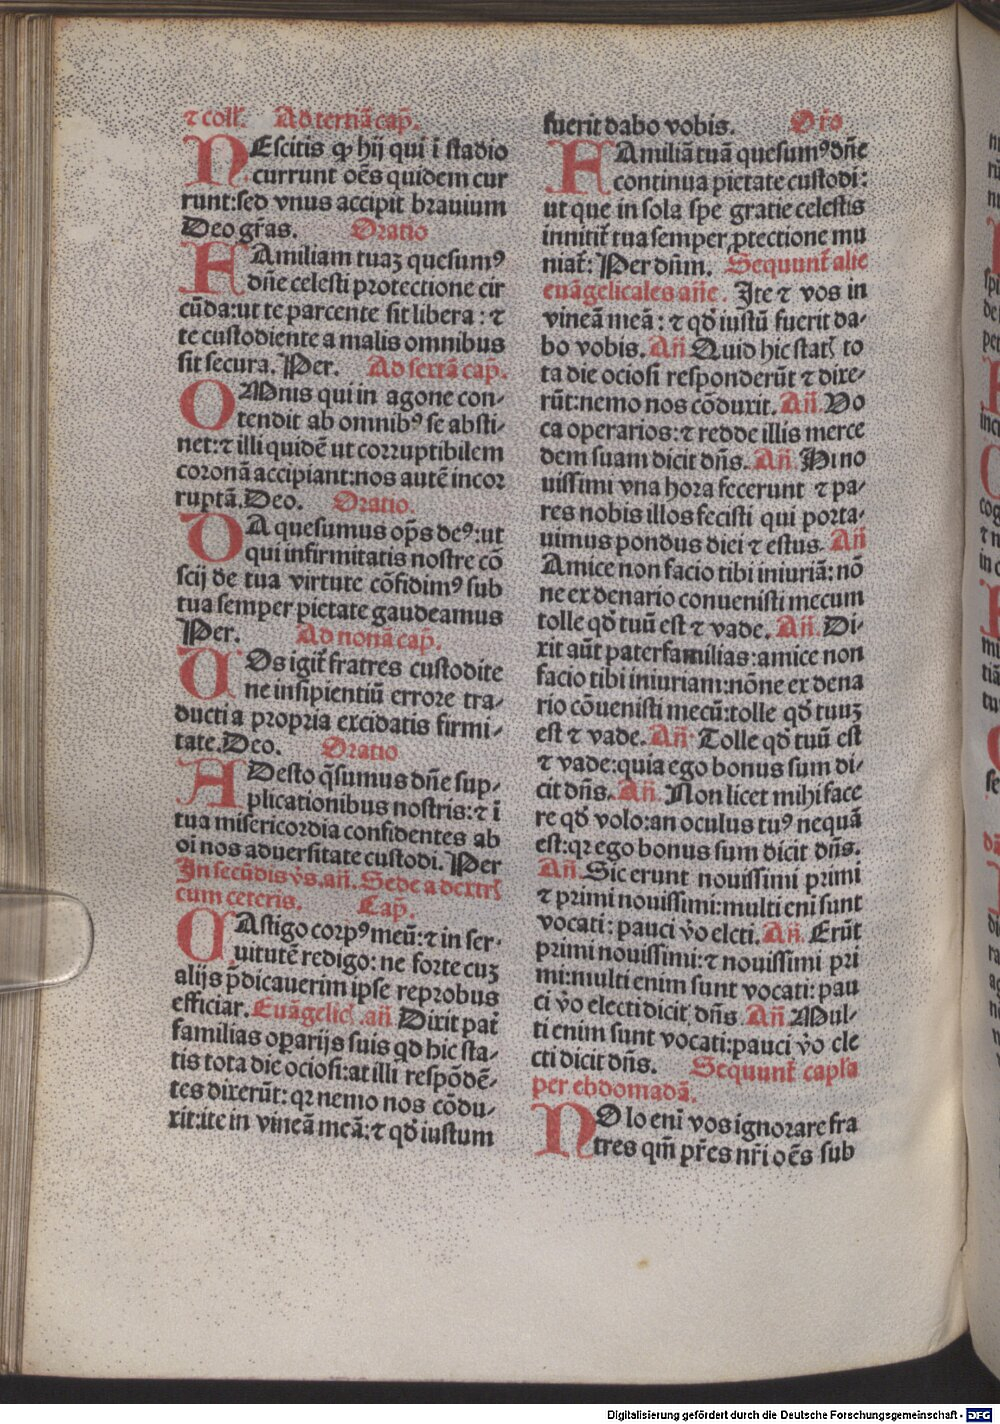 ⁊ coll̃. Ad ternã cap̃.
NEscitis ꝙ hij qui ĩ stadio
currunt oẽs quidem cur
runt:sed vnus accipit brauium
Deo gr̃as. Oratio
FAmiliam tuaꝫ quesumꝰ
dñe celesti protectione cir
cũda:ut te parcente sit libera : ⁊
te custodiente a malis omnibus
sit secura. Per. Ad sextã cap̃.
OMnis qui in agone con-
tendit ab omnibꝰ se absti-
net:⁊ illi quidẽ ut corruptibilem
coronã accipiant:nos autẽ incor
ruptã. Deo. Oratio.
DA quesumus op̃s deꝰ:ut
qui infirmitatis nostre cõ
scij de tua virtute cõfidimꝰ sub
tua semper pietate gaudeamus
Per. Ad nonã cap̃.
VOs igit̃ fratres custodite
ne insipientiũ errore tra-
ducti a propria excidatis firmi-
tate. Deo. Oratio
ADesto q̃sumus dñe sup-
plicationibus nostris:⁊ ĩ
tua misericordia confidentes ab
oĩ nos aduersitate custodi. Per
In secũdis ṽs.añ. Sede a dextr̃
cum ceteris. Cap̃.
CAstigo corpꝰ meũ:⁊ in ser-
uitutẽ redigo: ne forte cuꝫ
alijs p̃dicauerim ipse reprobus
efficiar. Euãgelic̃ .añ. Dixit pat̃
familias oꝑarijs suis qd̃ hic sta-
tis tota die ociosi:at illi respõdẽ-
tes dixerũt: qꝛ nemo nos cõdu-
xit:ite in vineã meã: ⁊ qd̃ iustum
fuerit dabo vobis. Or̃o
FAmiliã tuã quesumꝰ dñe
continua pietate custodi:
ut que in sola spe gratie celestis
innitit̃ tua semper ꝓtectione mu
niat̃: Per dñm. Sequunt̃ alie
euãgelicales añe. Ite ⁊ vos in
vineã meã : ⁊ qd̃ iustũ fuerit da-
bo vobis. Añ Quid hic stat̃ to
ta die ociosi responderũt ⁊ dixe-
rũt:nemo nos cõduxit. Añ. Vo
ca operarios:⁊ redde illis merce
dem suam dicit dñs. Añ. Hi no
uissimi vna hora fecerunt ⁊ pa-
res nobis illos fecisti qui porta-
uimus pondus diei ⁊ estus. Añ
Amice non facio tibi iniuriã: nõ
ne ex denario conuenisti mecum
tolle qd̃ tuũ est ⁊ vade. Añ. Di-
xit aũt paterfamilias:amice non
facio tibi iniuriam:nõne ex dena
rio cõuenisti mecũ:tolle qd̃ tuuꝫ
est ⁊ vade. Añ. Tolle qd̃ tuũ est
⁊ vade:quia ego bonus sum di-
cit dñs. Añ. Non licet mihi face
re qd̃ volo:an oculus tuꝰ nequã
est:qꝛ ego bonus sum dicit dñs.
Añ. Sic erunt nouissimi primi
⁊ primi nouissimi:multi enĩ sunt
vocati : pauci ṽo elcti. Añ. Erũt
primi nouissimi:⁊ nouissimi pri
mi:multi enim sunt vocati: pau
ci ṽo electi dicit dñs. Añ. Mul-
ti enim sunt vocati:pauci ṽo ele
cti dicit dñs. Sequunt̃ capl̃a
per ebdomadã.
NOlo enĩ vos ignorare fra
tres qm̃ pr̃es nr̃i oẽs sub
Digitalisierung gefördert durch die Deutsche Forschungsgemeinschaft - DFG